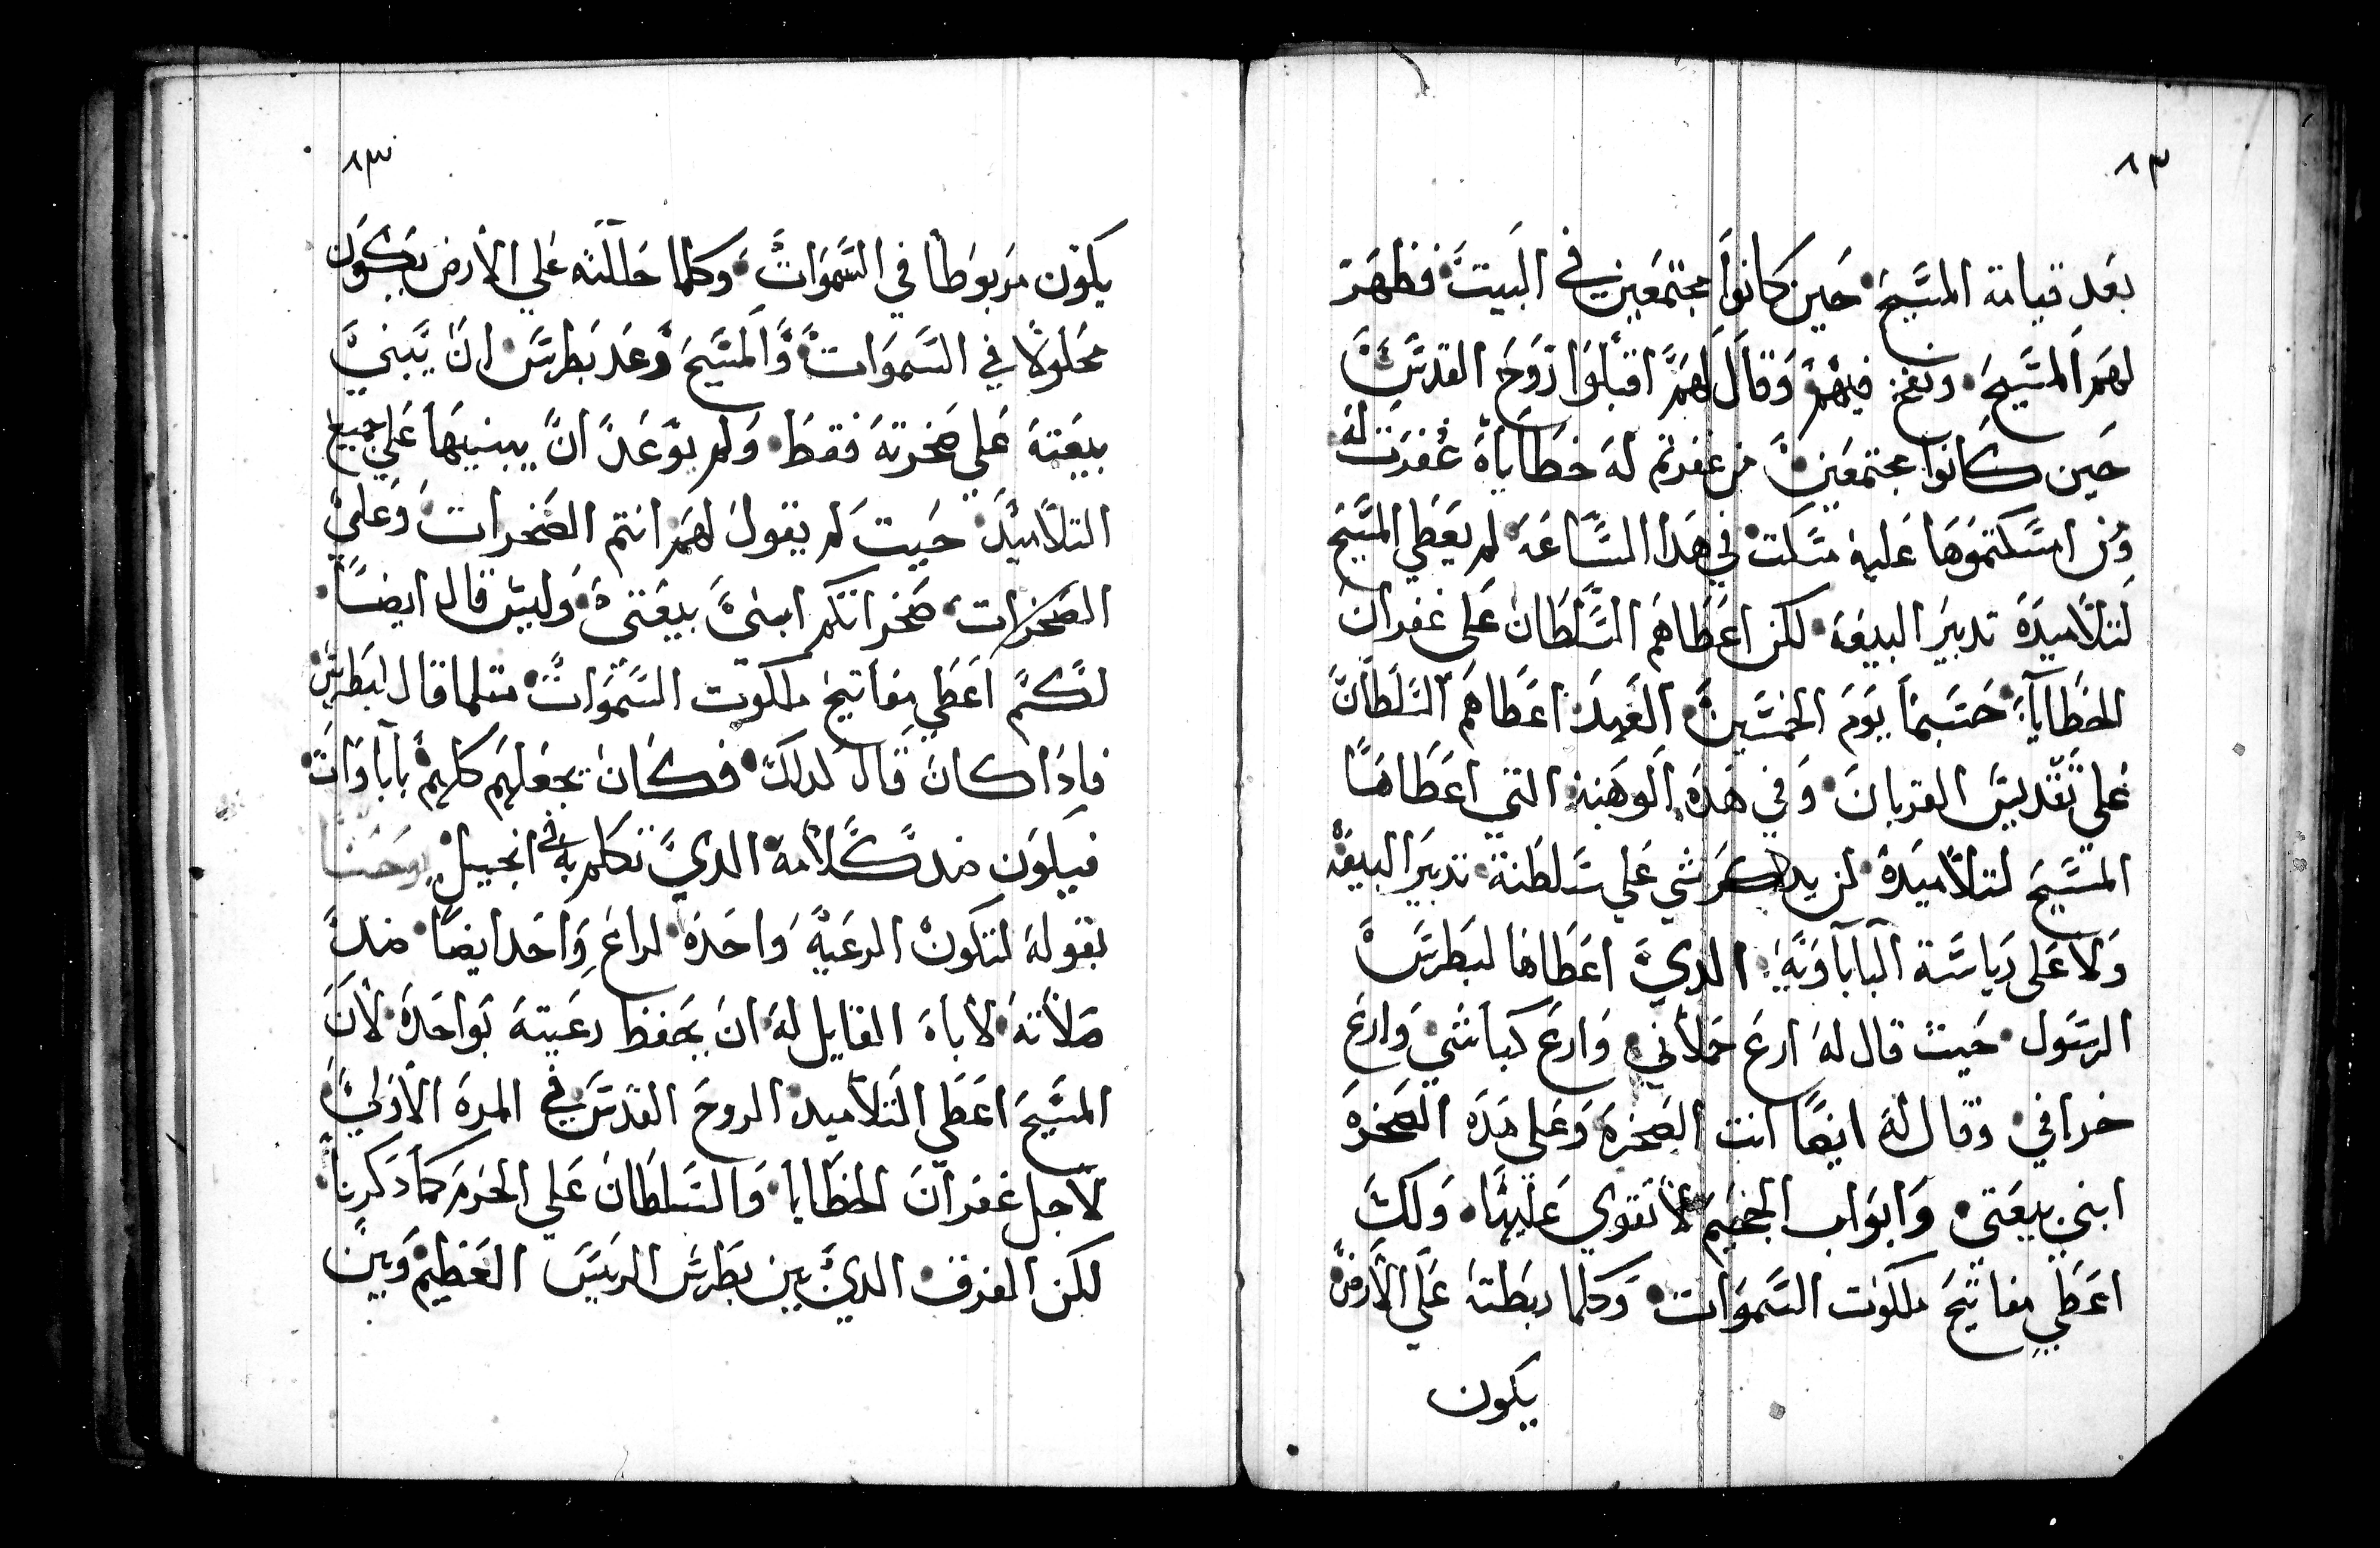 ٨٣
بعد قيامة المسيح حين كانوا مجتمعين في البيت فظهر
لهم المسيح ونفخ فيهم وقال لهم اقبلوا روح القدس
حين كانوا مجتمعين من غفرتم له خطاياه غفرت له
ومن امسكتموها عليه مسكت في هدا الساعه لم يعطي المسيح
لتلاميده تدبير البيعه لكن اعطاهم السلطان على غفران
الخطايا حتىما يوم الخمسين العهد اعطاهم السلطان
على تقديس القربان وفي هده الوهبه التي اعطاها
المسيح لتلاميده لن يدكر شي علي سلطنة تدبير البيعه
ولا على رياسة الباباويه الدي اعطاها لبطرس
الرسول حيت قال له ارع حملاني وارع كباشي وارع
خرافي وقال له ايضا انت الصخره وعلى هده الصخره
ابني بيعتي وابواب الجحيم لا تقوي عليها ولك
اعطي مفاتيح ملكوت السموات وكلما ربطته على الارض
يكون
٨٣
يكون مربوطا في السموات وكلما حللته علي الارض يكون
محلولا في السموات والمسيح وعد بطرس ان يبني
بيعته علي صخرته فقط ولم يوعد ان يبنيها علي جميع
التلاميد حيت لم يقول لهم انتم الصخرات وعلي
الصخرات صخراتكم ابني بيعتي وليس قال ايضا
لكم اعطي مفاتيح ملكوت السموات متلما قال لبطرس
فادا كان قال لدلك فكان يجعلهم كلهم باباوات
فيكون ضد كلامه الدي تكلم به في انجيل يوحنا
بقوله لتكون الرعيه واحده لراع واحد ايضا ضد
صلاته لاباه القايل له ان يحفظ رعيته بواحده لان
المسيح اعطي التلاميد الروح القدس في المره الاولي
لاجل غفران الخطايا والسلطان علي الحرم كما دكرنا
لكن الفرق الدي بين بطرس الريس العظيم وبين